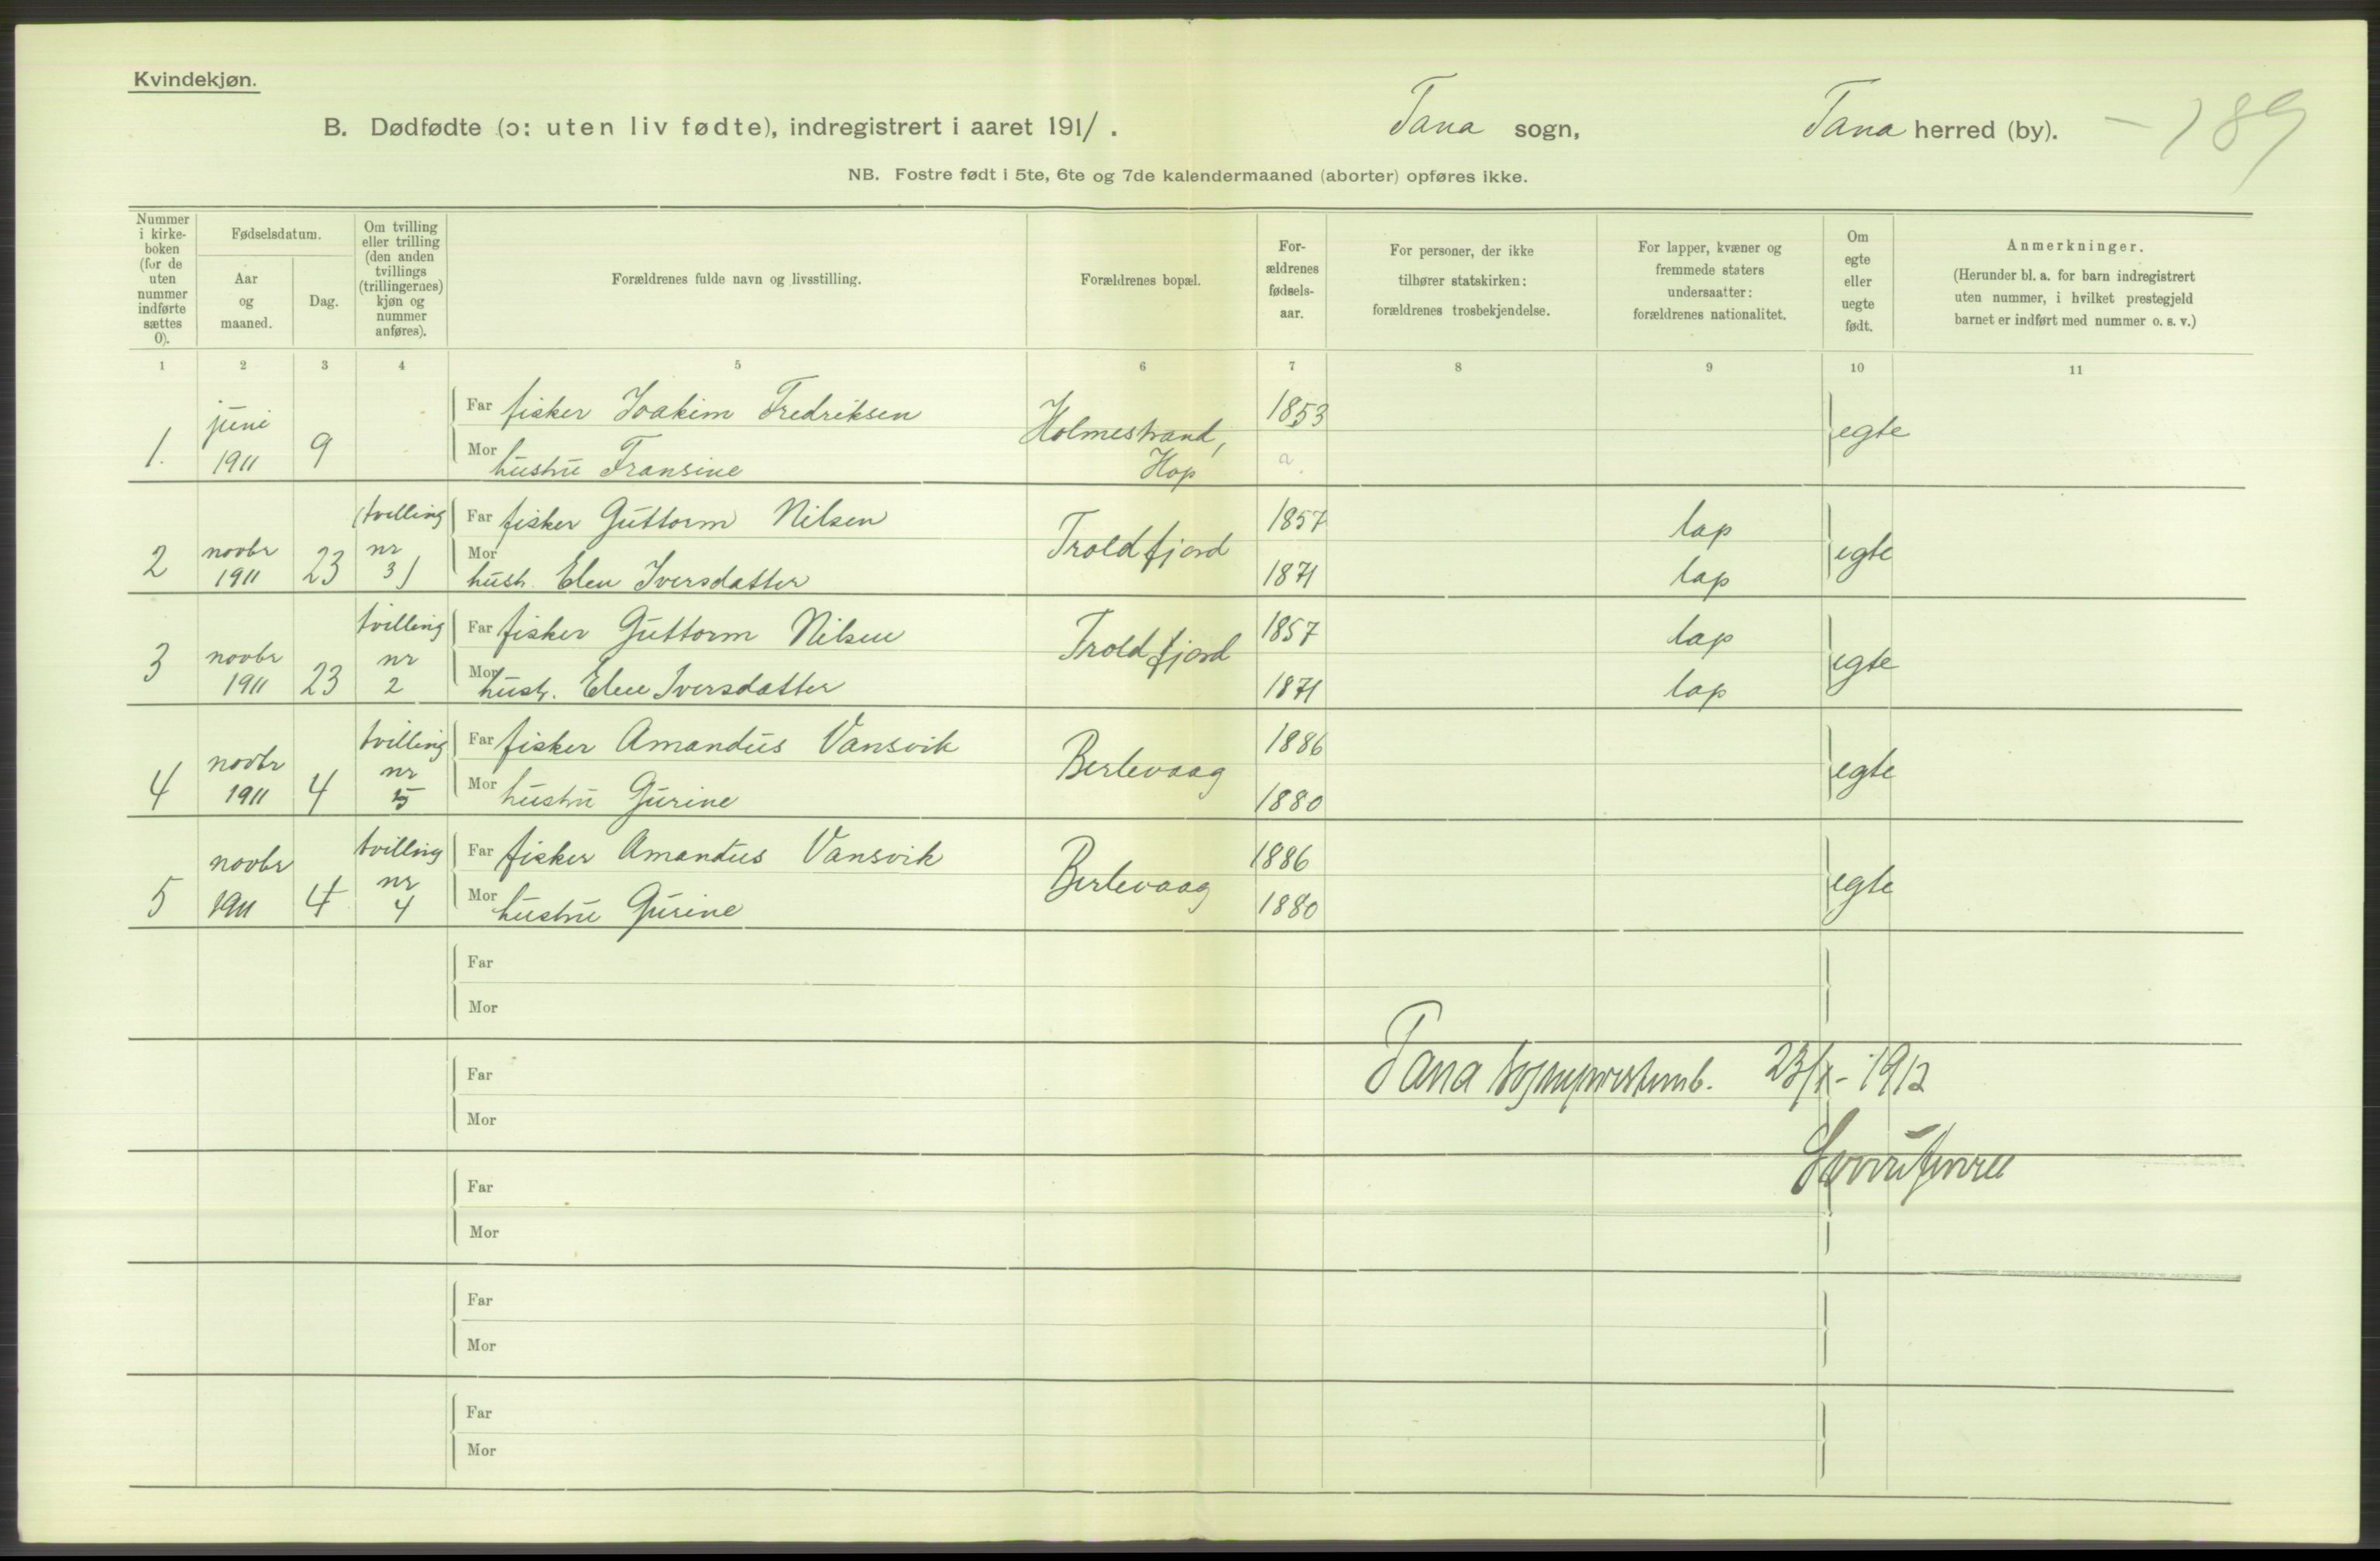 Kvindekjøn.
B. Dødfødte (ɔ: uten liv fødte), indregistrert i aaret 1911. Tana sogn, Tana herred (by). – 189
NB. Fostre født i 5te, 6te og 7de kalendermaaned (aborter) opføres ikke.
Nummer i kirke- boken (for de uten nummer indførte sættes 0).
Fødselsdatum.
Aar og maaned.
Dag.
Om tvilling eller trilling (den anden tvillings (trillingernes) kjøn og nummer anføres).
Forældrenes fulde navn og livsstilling.
Forældrenes bopæl.
For- ældrenes fødsels- aar.
For personer, der ikke tilhører statskirken: forældrenes trosbekjendelse.
For lapper, kvæner og fremmede staters undersaatter: forældrenes nationalitet.
Om egte eller uegte født.
Anmerkninger.
(Herunder bl. a. for barn indregistrert uten nummer, i hvilket prestegjeld barnet er indført med nummer o. s. v.)
1 2 3 4 5 6 7 8 9 10 11
1. juni 1911 9 Far fisker Joakim Fredriksen Holmestrand, Hop 1853 egte
Mor hustru Fransine
2 novbr 1911 23 (tvilling nr 3) Far fisker Guttorm Nilsen Troldfjord 1857 lap egte
Mor hustr. Elen Iversdatter 1871 lap
3 novbr 1911 23 tvilling nr 2 Far fisker Guttorm Nilsen Troldfjord 1857 lap egte
Mor hustr. Elen Iversdatter 1871 lap
4 novbr 1911 4 tvilling nr 5 Far fisker Amandus Vansvik Berlevaag 1886 egte
Mor hustru Gurine 1880
5 novbr 1911 4 tvilling nr 4 Far fisker Amandus Vansvik Berlevaag 1886 egte
Mor hustru Gurine 1880
Far
Mor
Far
Mor
Tana sogneprestemb. 23/1 - 1912
Far
Mor
Far
Mor
Far
Mor